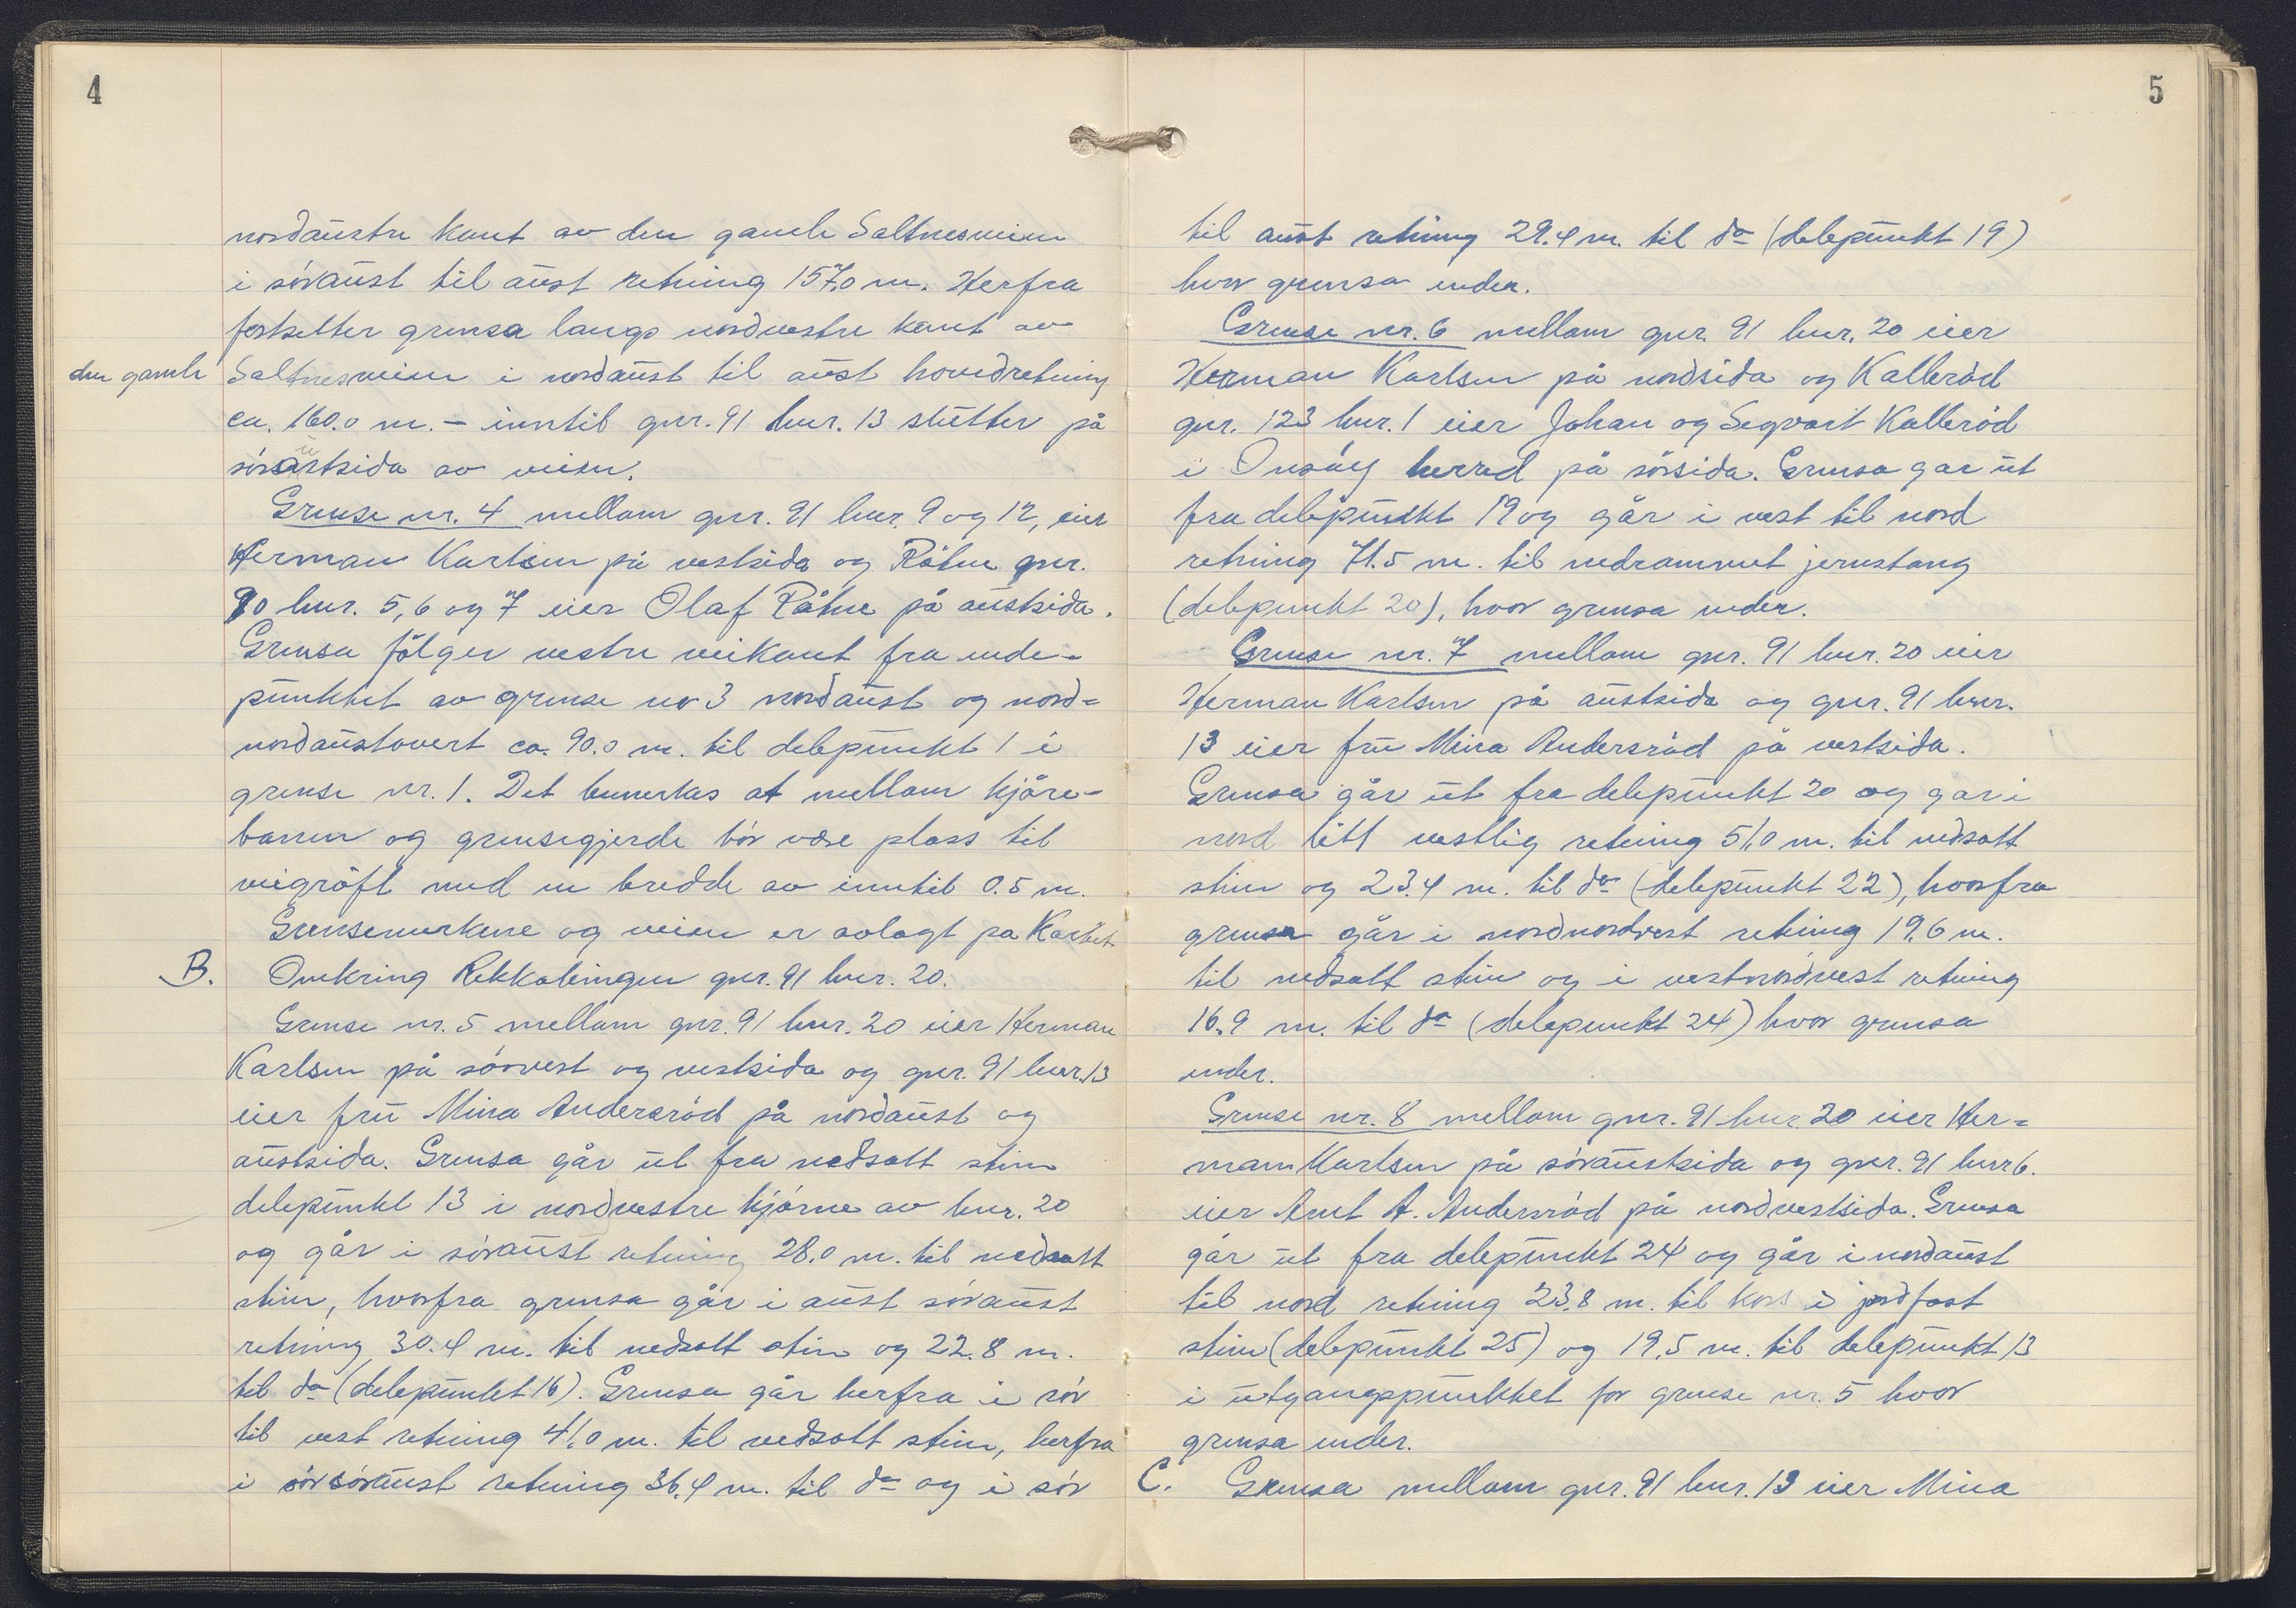 4
nordaustre kant av den gamle Saltnesveien
i søraust til aust retning 157,0 m. Herfra
fortsetter grensa langs nordvestre kant av
den gamle Saltnesveien i nordaust til aust hovedretning
ca. 160.0 m. – inntil gnr. 91 bnr. 13 slutter på
søraustsida av veien.
Grense nr. 4 mellom gnr. 91 bnr. 9 og 12, eier
Herman Karlsen på vestsida og Råhne gnr.
90 bnr. 5, 6 og 7 eier Olaf Råhne på austsida.
Grensa følger vestre veikant fra ende-
punktet av grense nr 3 nordaust og nord-
nordaustover ca. 90.0 m. til delepunkt 1 i
grense nr. 1. Det bemerkes at mellom kjøre-
banen og grensegjerde bør være plass til
veigrøft med en bredde av inntil 0.5 m.
Grensemerkene og veien er avlagt på Kartet.
B. Omkring Rekkalingen gnr. 91 bnr. 20.
Grense nr. 5 mellom gnr. 91 bnr. 20 eier Herman
Karlsen på sørvest og vestsida og gnr. 91 bnr. 13
eier fru Mina Andersrød på nordaust og
austsida. Grensa går ut fra nedsatt stein
delepunkt 13 i nordvestre hjørne av bnr. 20
og går i søraust retning 28.0 m. til nedsatt
stein, hvorfra grensa går i aust søraust
retning 30.4 m. til nedsatt stein og 22.8 m.
til do (delepunkt 16). Grensa går herfra i sør
til vest retning 41,0 m. til nedsatt stein, herfra
i sørsøraust retning 36.4 m. til do og i sør
5
til aust retning 29.4 m. til do (delepunkt 19)
hvor grensa ender.
Grense nr. 6 mellom gnr. 91 bnr. 20 eier
Herman Karlsen på nordsida og Kallerød
gnr. 123 bnr. 1 eier Johan og Segvart Kallerød
i Onsøy herred på sørsida. Grensa gar ut
fra delepunkt 19 og går i vest til nord
retning 71.5 m. til nedrammet jernstang
(delepunkt 20), hvor grensa ender.
Grense nr. 7 mellom gnr. 91 bnr. 20 eier
Herman Karlsen på austsida og gnr. 91 bnr.
13 eier fru Mina Andersrød på vestsida.
Grensa går ut fra delepunkt 20 og gar i
nord litt vestlig retning 51,0 m. til nedsatt
stein og 23.4 m. til do (delepunkt 22), hvorfra
grensa går i nordnordvest retning 19.6 m.
til nedsatt stein og i vestnordvest retning
16.9 m. til do (delepunkt 24) hvor grensa
ender.
Grense nr. 8 mellom gnr. 91 bnr. 20 eier Her-
man Karlsen på søraustsida og gnr. 91 bnr 6.
eier Arnt A. Andersrød på nordvestsida. Grensa
går ut fra delepunkt 24 og går i nordaust
til nord retning 23.8 m. til kors i jordfast
stein (delepunkt 25) og 19.5 m. til delepunkt 13
i utgangspunktet for grense nr. 5 hvor
grensa ender.
C. Grensa mellom gnr. 91 bnr. 13 eier Mina